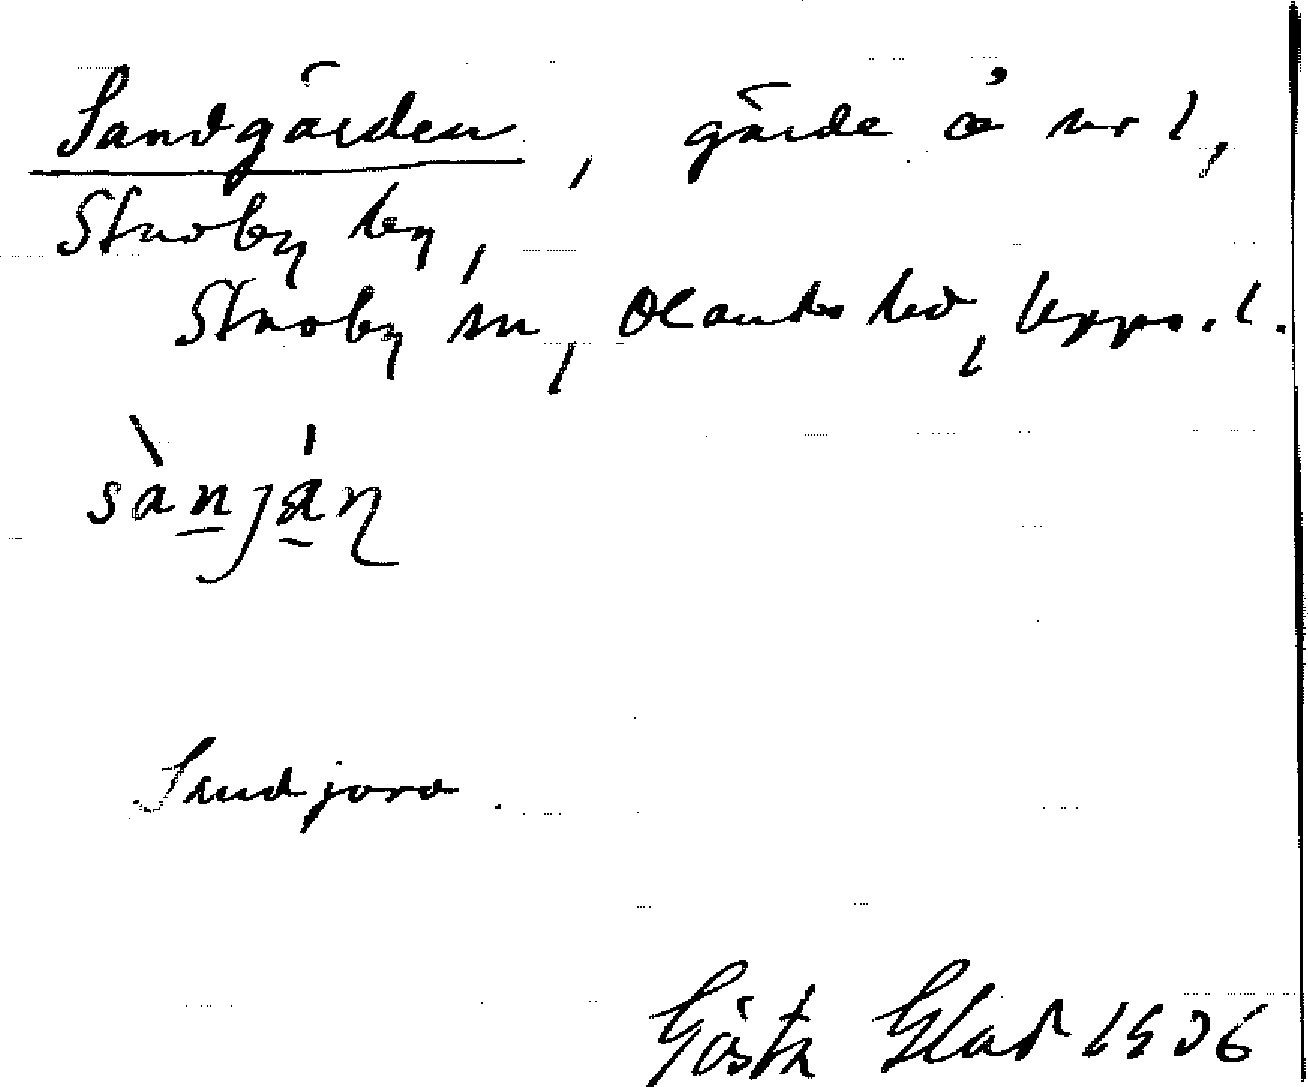 Sandgärden, gärde å nr 1,
Stavby by,
Stavby sn, Olands hd, Upps. l.
sànjáɳ
Sandjord.
Gösta Glad 1936